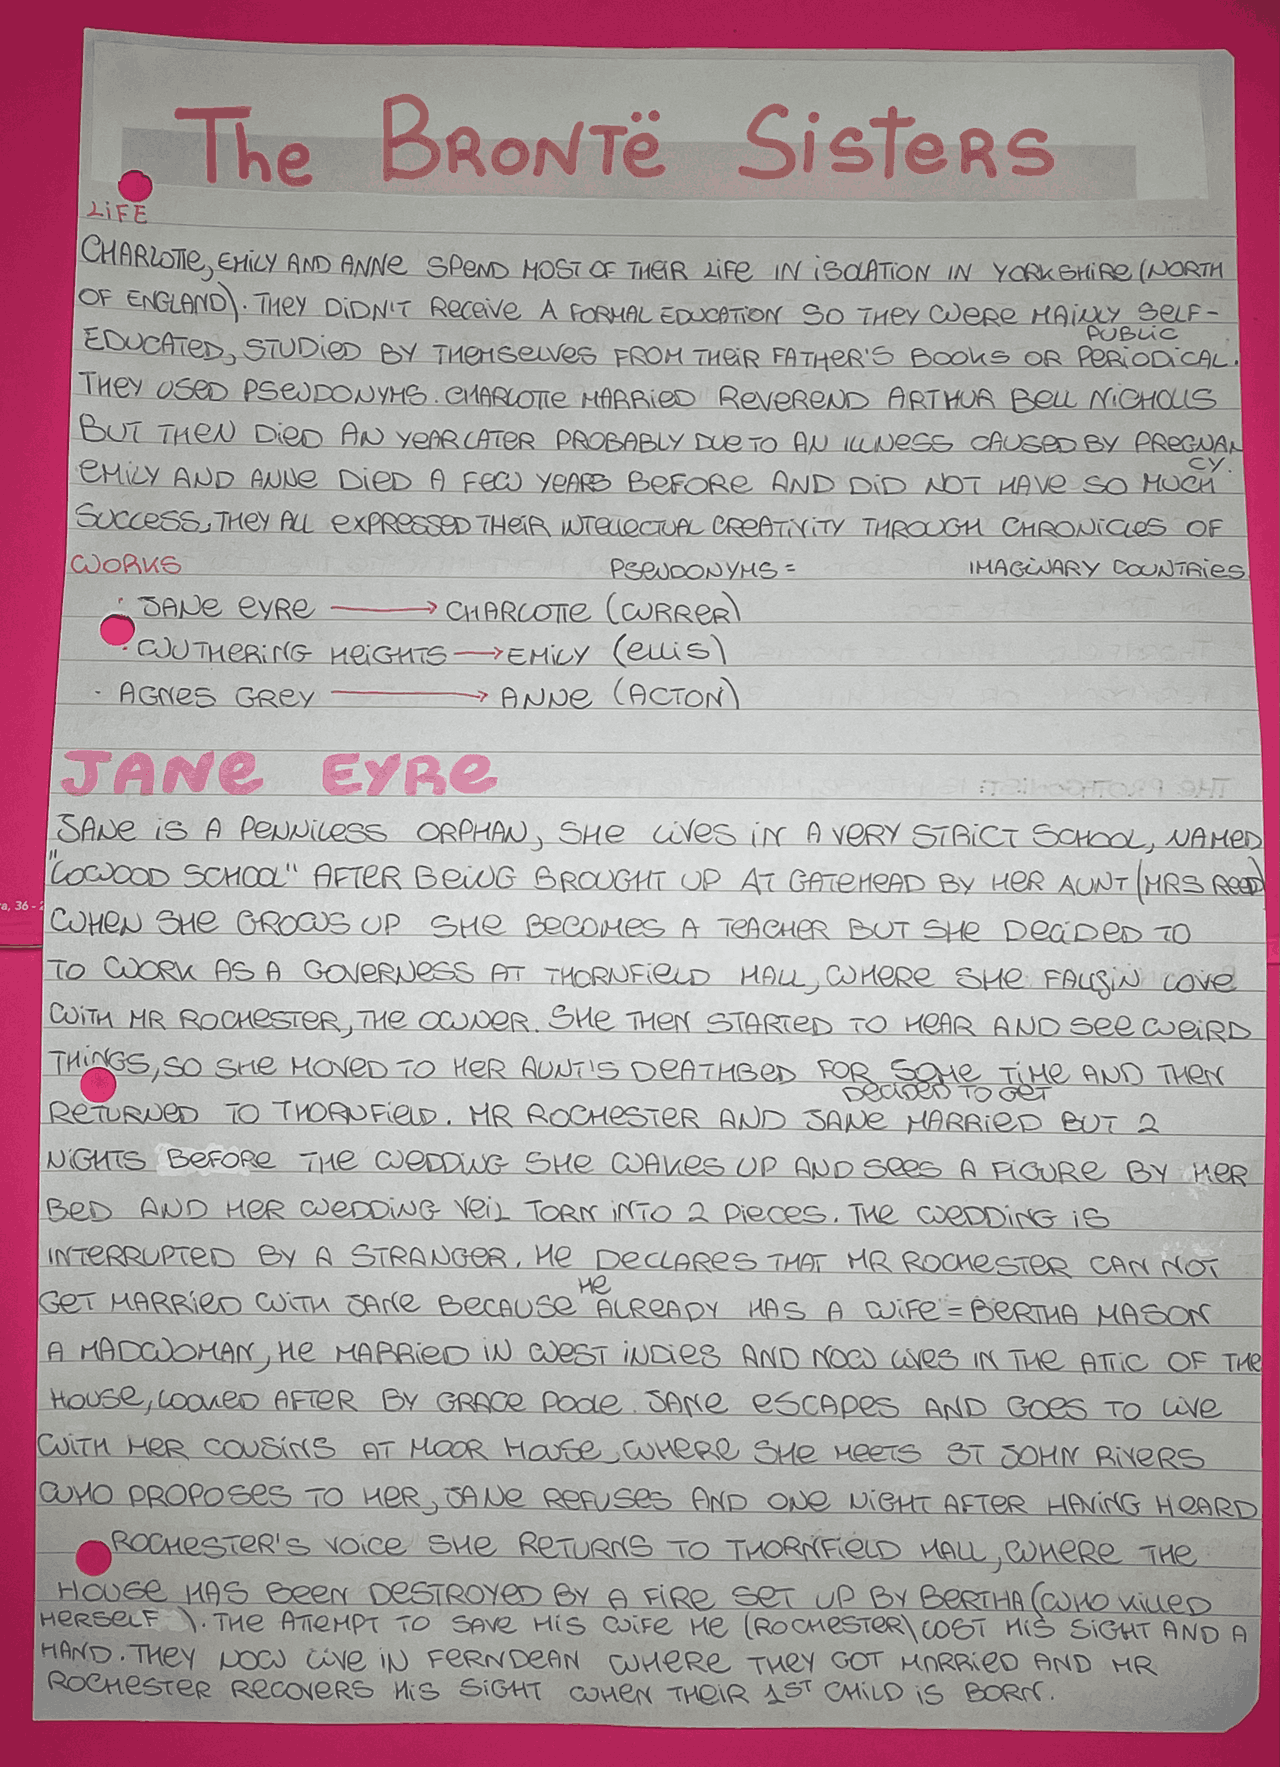 The BRONTË SisteRS
LIFE
CHARLOTTE, EMILY AND ANNE SPEND MOST OF THEIR LIFE IN ISOLATION IN YORKSHIRE (NORTH
OF ENGLAND). THEY DIDN'T RECEIVE A FORMAL EDUCATION SO THEY WERE MAINLY SELF-
PUBLIC
EDUCATED, STUDIED BY THEMSELVES FROM THEIR FATHER'S BOOKS OR PERIODICAL.
THEY USED PSEUDONYMS. CHARLOTTE MARRIED REVEREND ARTHUR BELL NICHOLLS
BUT THEN DIED AN YEAR LATER PROBABLY DUE TO AN ILLNESS CAUSED BY PREGNAN
CY.
EMILY AND ANNE DIED A FEW YEARS BEFORE AND DID NOT HAVE SO MUCH
SUCCESS, THEY ALL EXPRESSED THEIR INTELLECTUAL CREATIVITY THROUGH CHRONICLES OF
WORKS PSEUDONYMS = IMAGINARY COUNTRIES
· JANE EYRE → CHARLOTTE (CURRER)
· WUTHERING HEIGHTS → EMILY (ELLIS)
· AGNES GREY → ANNE (ACTON)
JANE EYRE
JANE IS A PENNILESS ORPHAN, SHE LIVES IN A VERY STRICT SCHOOL, NAMED
"LOWOOD SCHOOL" AFTER BEING BROUGHT UP AT GATEHEAD BY HER AUNT (MRS REED)
WHEN SHE GROWS UP SHE BECOMES A TEACHER BUT SHE DECIDED TO
TO WORK AS A GOVERNESS AT THORNFIELD HALL, WHERE SHE FALLS IN LOVE
WITH MR ROCHESTER, THE OWNER. SHE THEN STARTED TO HEAR AND SEE WEIRD
THINGS, SO SHE MOVED TO HER AUNT'S DEATHBED FOR SOME TIME AND THEN
DECIDED TO GET
RETURNED TO THORNFIELD. MR ROCHESTER AND JANE MARRIED BUT 2
NIGHTS BEFORE THE WEDDING SHE WAKES UP AND SEES A FIGURE BY HER
BED AND HER WEDDING VEIL TORN INTO 2 PIECES. THE WEDDING IS
INTERRUPTED BY A STRANGER. HE DECLARES THAT MR ROCHESTER CAN NOT
HE
GET MARRIED WITH JANE BECAUSE ALREADY HAS A WIFE = BERTHA MASON
A MADWOMAN, HE MARRIED IN WEST INDIES AND NOW LIVES IN THE ATTIC OF THE
HOUSE, LOOKED AFTER BY GRACE POOLE. JANE ESCAPES AND GOES TO LIVE
WITH HER COUSINS AT MOOR HOUSE, WHERE SHE MEETS ST JOHN RIVERS
WHO PROPOSES TO HER, JANE REFUSES AND ONE NIGHT AFTER HAVING HEARD
ROCHESTER'S VOICE SHE RETURNS TO THORNFIELD HALL, WHERE THE
HOUSE HAS BEEN DESTROYED BY A FIRE SET UP BY BERTHA (WHO KILLED
HERSELF). THE ATTEMPT TO SAVE HIS WIFE HE (ROCHESTER) LOST HIS SIGHT AND A
HAND. THEY NOW LIVE IN FERNDEAN WHERE THEY GOT MARRIED AND MR
ROCHESTER RECOVERS HIS SIGHT WHEN THEIR 1ST CHILD IS BORN.